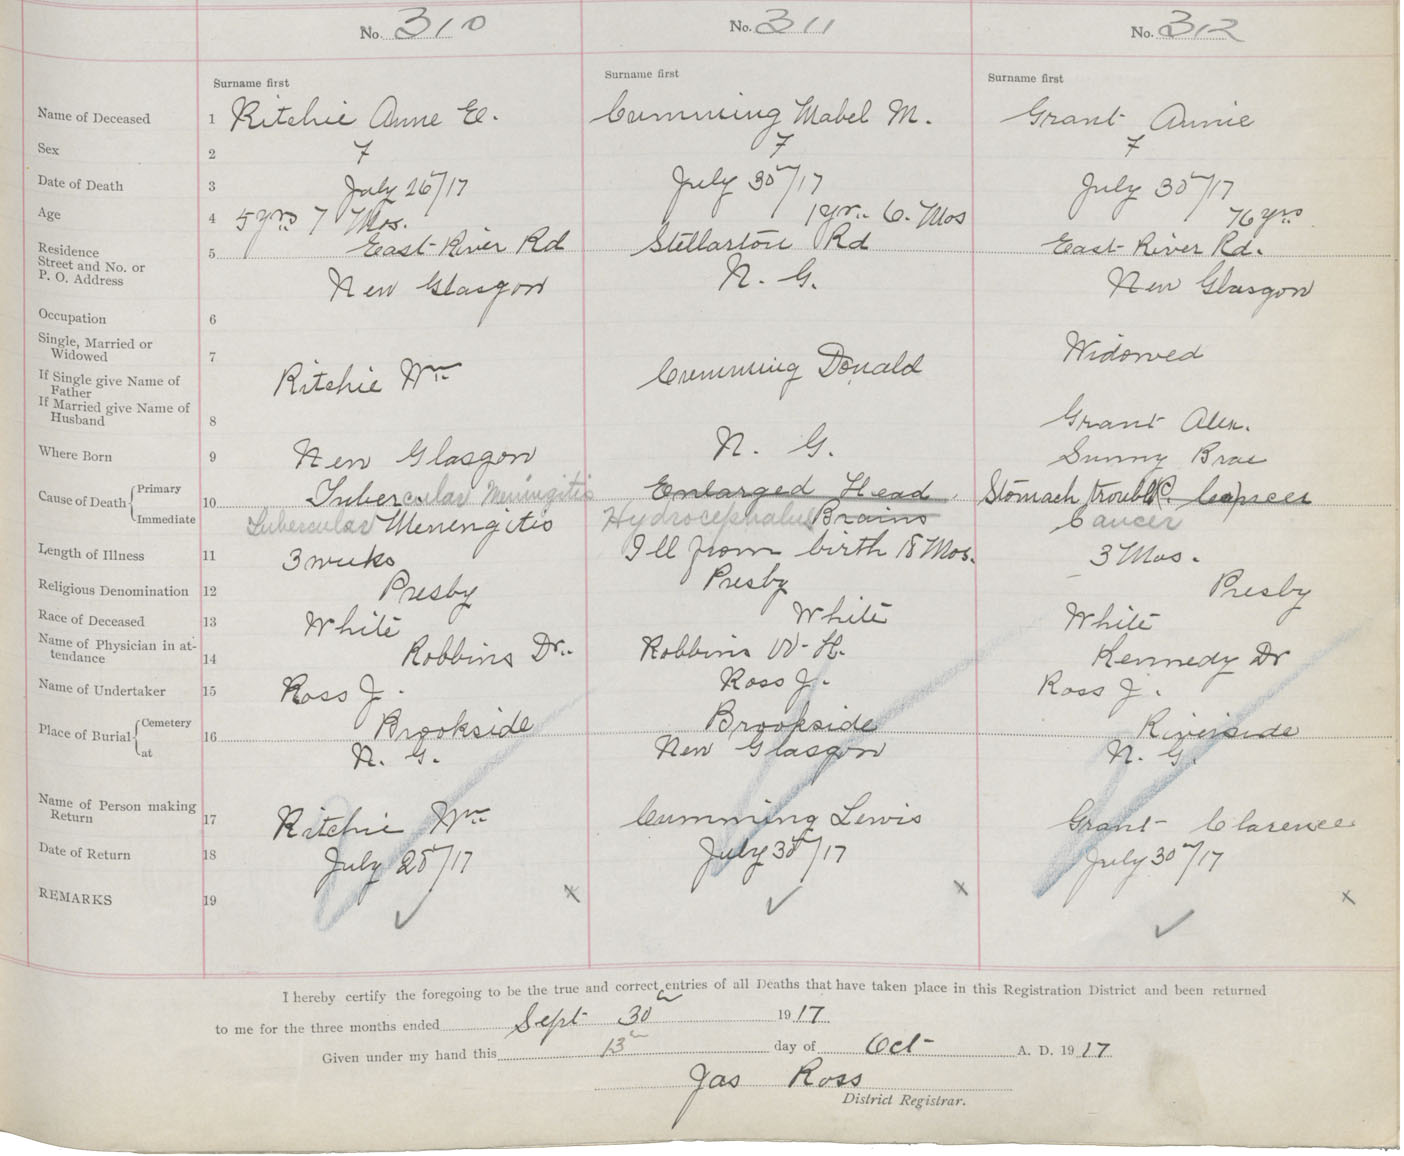 No. 310 No. 311 No. 312
Surname first Surname first Surname first
Name of Deceased 1 Ritchie Anne E. Cumming Mabel M. Grant Annie
Sex 2 F F F
Date of Death 3 July 26/17 July 30/17 July 30/17
Age 4 5 yrs 7 Mos. 1 yr. 6. Mos 76 yrs
Residence
Street and No. or
P. O. Address
5 East River Rd Stellarton Rd East River Rd.
New Glasgow N. G. New Glasgow
Occupation 6
Single, Married or
Widowed 7 Widowed
If Single give Name of
Father Ritchie Wm Cumming Donald
If Married give Name of
Husband 8 Grant Alex.
Where Born 9 New Glasgow N. G. Sunny Brae
Cause of Death Primary
Immediate
10 Tubercular Meningitis Enlarged Head Stomach trouble
Tubercular Meningitis Hydrocephalus Brains Cancer
Length of Illness 11 3 weeks Ill from birth 18 Mos. 3 Mos.
Religious Denomination 12 Presby Presby Presby
Race of Deceased 13 White White White
Name of Physician in at-
tendance 14 Robbins Dr. Robbins W. H. Kennedy Dr
Name of Undertaker 15 Ross J. Ross J. Ross J.
Place of Burial Cemetery
at
16 Brookside Brookside Riverside
N. G. New Glasgow N. G.
Name of Person making
Return 17 Ritchie Wm Cumming Lewis Grant Clarence
Date of Return 18 July /17 July 30/17 July 30/17
REMARKS 19
I hereby certify the foregoing to be the true and correct entries of all Deaths that have taken place in this Registration District and been returned
to me for the three months ended Sept 30th 1917
Given under my hand this 13th day of Oct A. D. 1917
Jas Ross
District Registrar.